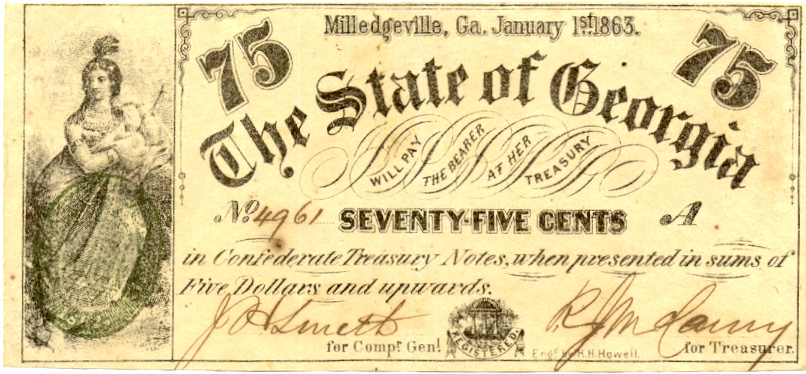 Milledgeville, Ga. January 1st. 1863.
75 75
The State of Georgia
WILL PAY THE BEARER AT HER TREASURY
No. 4961 SEVENTY-FIVE CENTS A
in Confederate Treasury Notes, when presented in sums of
Five Dollars and upwards.
for Compr. Genl. REGISTERED. Engd. by R.H. Howell. for Treasurer.